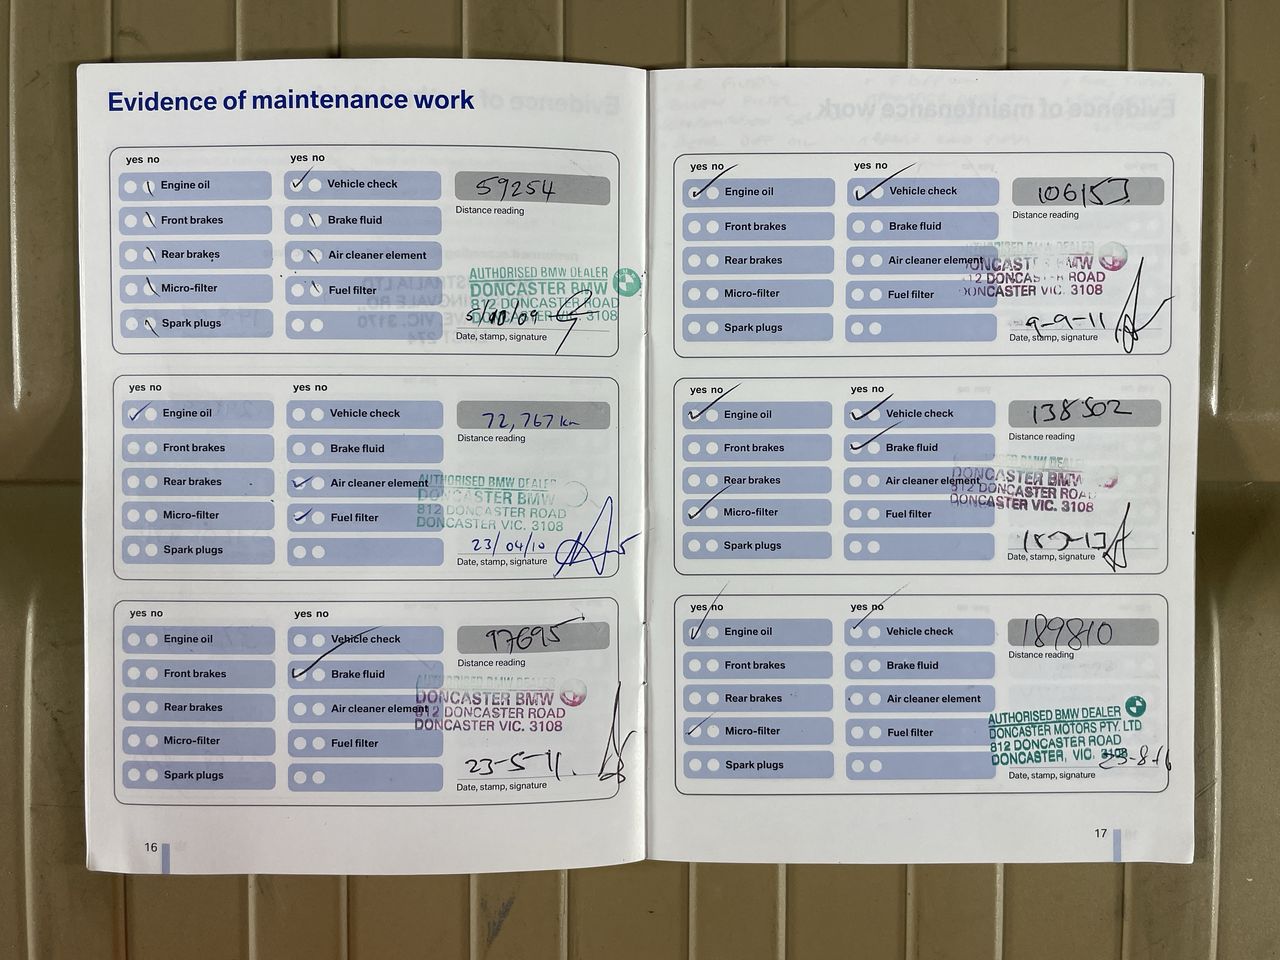 Evidence of maintenance work
yes no
yes no
Engine oil
Vehicle check
59254
Distance reading
Front brakes
Brake fluid
Rear brakes
Air cleaner element
Micro-filter
Fuel filter
Spark plugs
AUTHORISED BMW DEALER
DONCASTER BMW
812 DONCASTER ROAD
DONCASTER VIC. 3108
5/10/09
Date, stamp, signature
yes no
yes no
Engine oil
Vehicle check
72,767 km
Distance reading
Front brakes
Brake fluid
Rear brakes
Air cleaner element
Micro-filter
Fuel filter
Spark plugs
AUTHORISED BMW DEALER
DONCASTER BMW
812 DONCASTER ROAD
DONCASTER VIC. 3108
23/04/10
Date, stamp, signature
yes no
yes no
Engine oil
Vehicle check
97695
Distance reading
Front brakes
Brake fluid
Rear brakes
Air cleaner element
Micro-filter
Fuel filter
Spark plugs
AUTHORISED BMW DEALER
DONCASTER BMW
812 DONCASTER ROAD
DONCASTER VIC. 3108
23-5-11.
Date, stamp, signature
16
yes no
yes no
Engine oil
Vehicle check
106153
Distance reading
Front brakes
Brake fluid
Rear brakes
Air cleaner element
Micro-filter
Fuel filter
Spark plugs
AUTHORISED BMW DEALER
DONCASTER BMW
812 DONCASTER ROAD
DONCASTER VIC. 3108
9-9-11
Date, stamp, signature
yes no
yes no
Engine oil
Vehicle check
138502
Distance reading
Front brakes
Brake fluid
Rear brakes
Air cleaner element
Micro-filter
Fuel filter
Spark plugs
AUTHORISED BMW DEALER
DONCASTER BMW
812 DONCASTER ROAD
DONCASTER VIC. 3108
Date, stamp, signature
yes no
yes no
Engine oil
Vehicle check
189810
Distance reading
Front brakes
Brake fluid
Rear brakes
Air cleaner element
Micro-filter
Fuel filter
Spark plugs
AUTHORISED BMW DEALER
DONCASTER MOTORS PTY. LTD
812 DONCASTER ROAD
DONCASTER, VIC. 3108
23-8-16
Date, stamp, signature
17